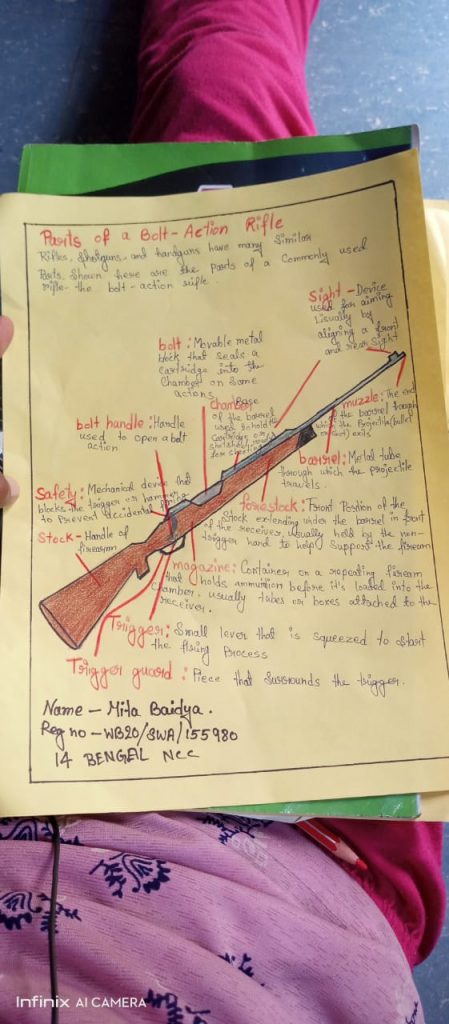 Parts of a Bolt-Action Rifle
Rifles, Shotguns, and handguns have many similar
Parts. Shown here are the parts of a commonly used
rifle - the bolt-action rifle.
Sight - Device
used for aiming
Usually by
aligning a front
and rear sight
bolt: Movable metal
block that seals a
cartridge into the
Chamber on some
actions
Chamber: Base
of the barrel
used to hold the
Cartridge or
Shotshell ready
for shooting
muzzle: The end
of the barrel through
which the projectile (bullet
or shot) exits
bolt handle: Handle
used to open a bolt
action
barrel: Metal tube
through which the projectile
travels.
Safety: Mechanical device that
blocks the trigger or hammer
to prevent accidental firing
forestock: Front Position of the
Stock extending under the barrel in front
of the receiver, usually held by the non-
trigger hand to help support the firearm
Stock - Handle of
firearm
magazine: Container on a repeating firearm
that holds ammunition before it's loaded into the
chamber. usually tubes or boxes attached to the
receiver.
Trigger: Small lever that is squeezed to start
the firing Process
Trigger guard: Piece that surrounds the trigger.
Name - Mita Baidya.
Reg no - WB20/SWA/155980
14 BENGAL NCC
Infinix AI CAMERA